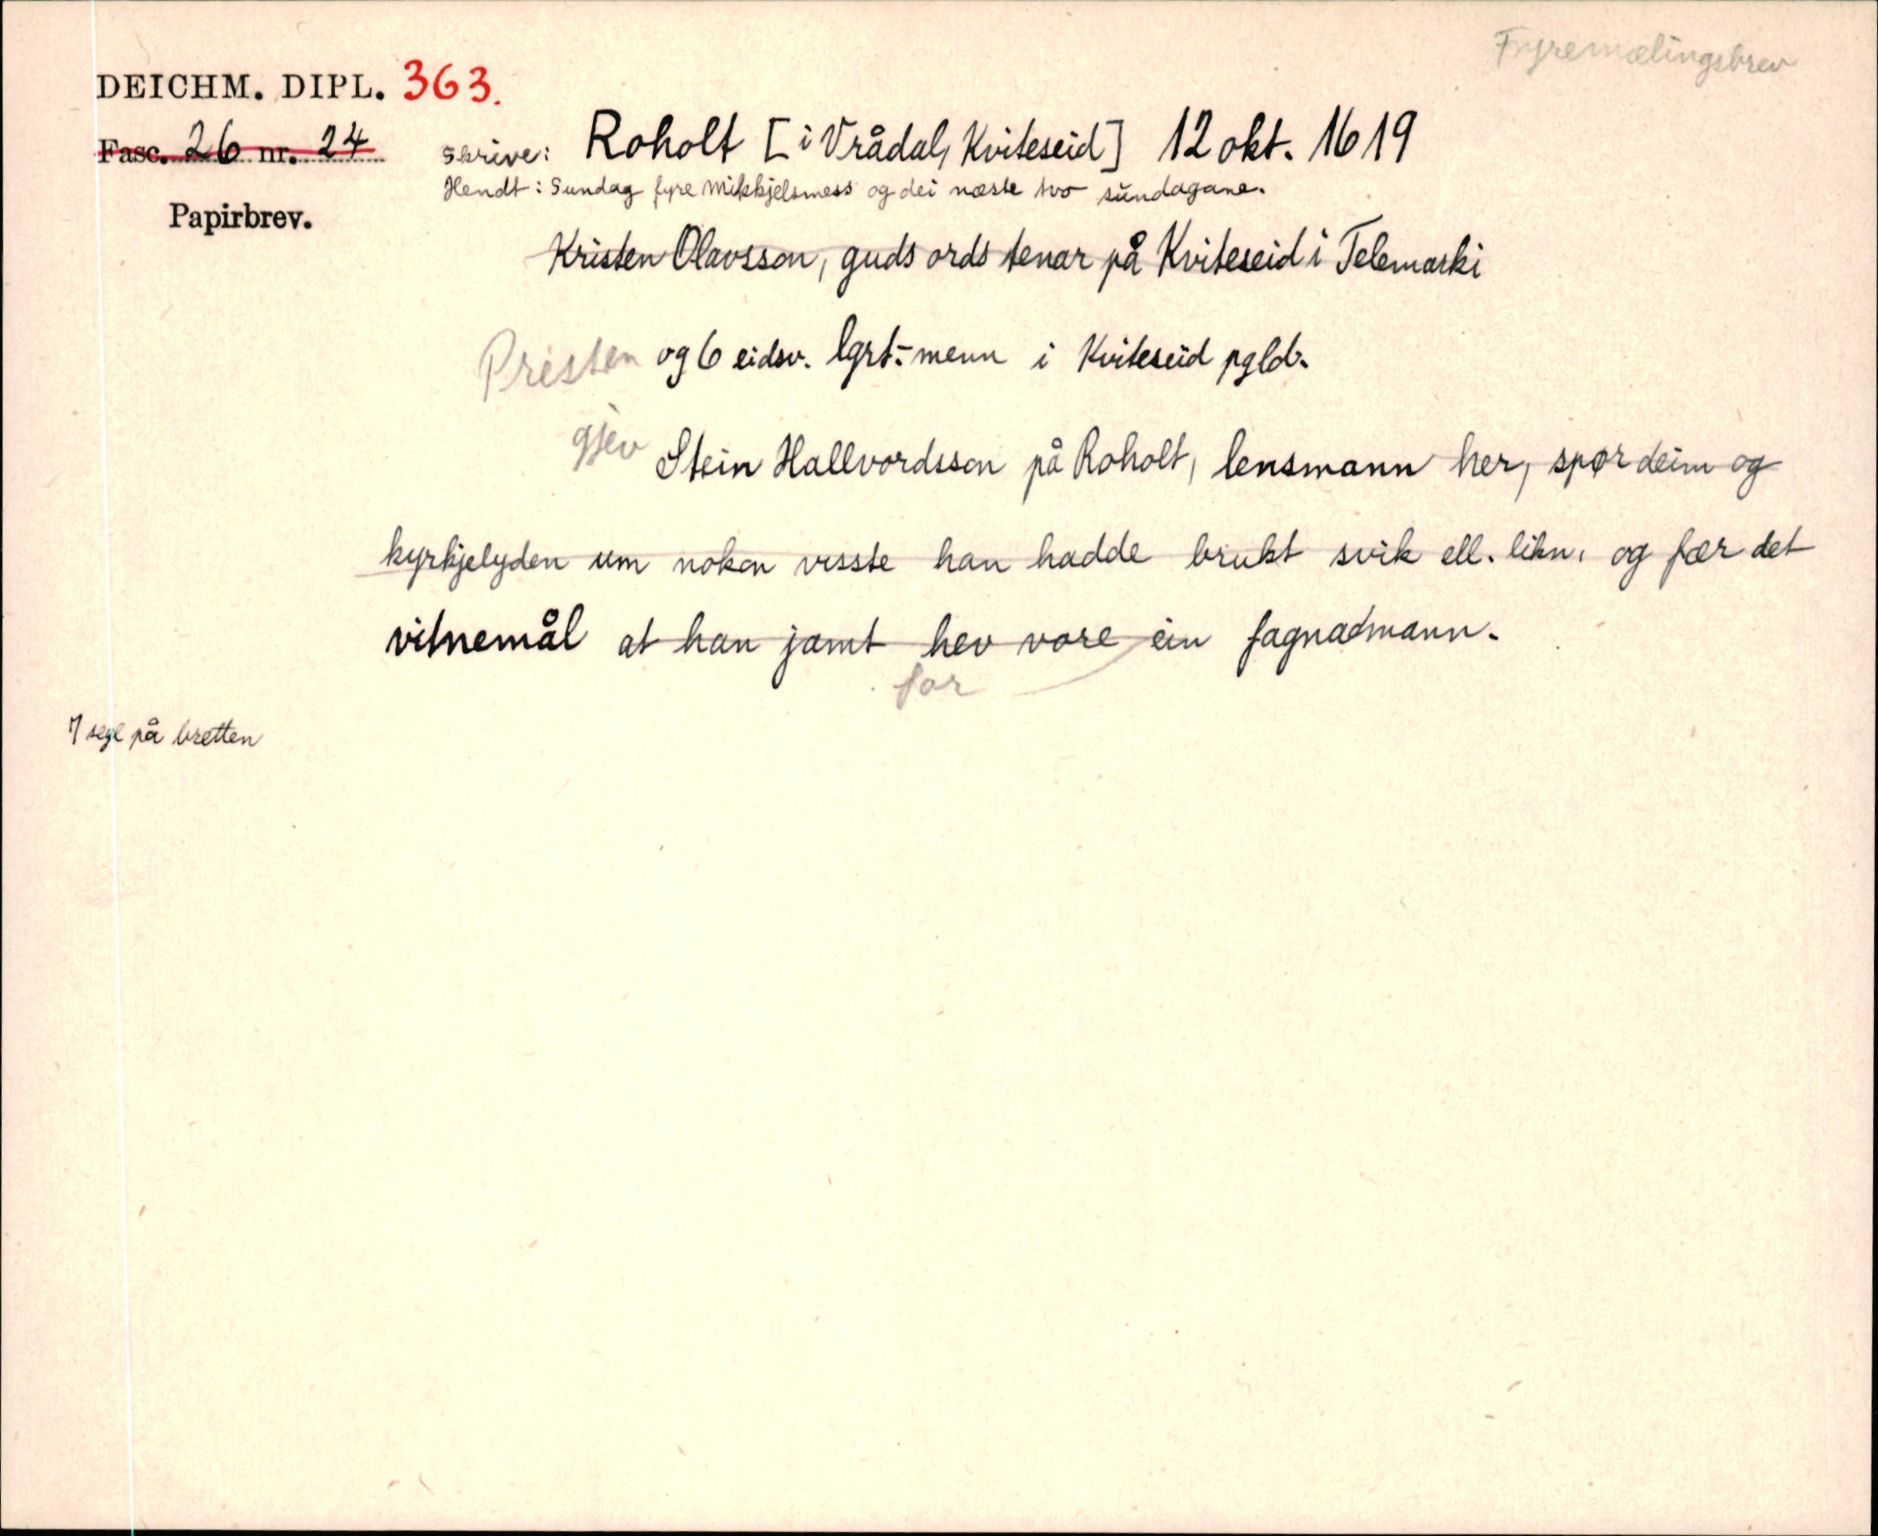 Fyremælingsbrev
DEICHM. DIPL. 363.
Fasc. 26 nr. 24
Papirbrev.
skrive: Roholt [i Vrådal, Kviteseid] 12 okt. 1619
Hendt: Sundag fyre Mikkjelsmess og dei næste tvo sundagane.
Kristen Olavsson, guds ords tenar på Kviteseid i Telemarki
Presten og 6 eidsv. lgrt.-menn i Kviteseid pgld.
gjev Stein Hallvordsson på Roholt, lensmann her, spør deim og
kyrkjelyden um nokon visste han hadde brukt svik ell. likn. og fær det
vitnemål at han jamt hev vore ein fagnadmann.
for
7 segl på bretten